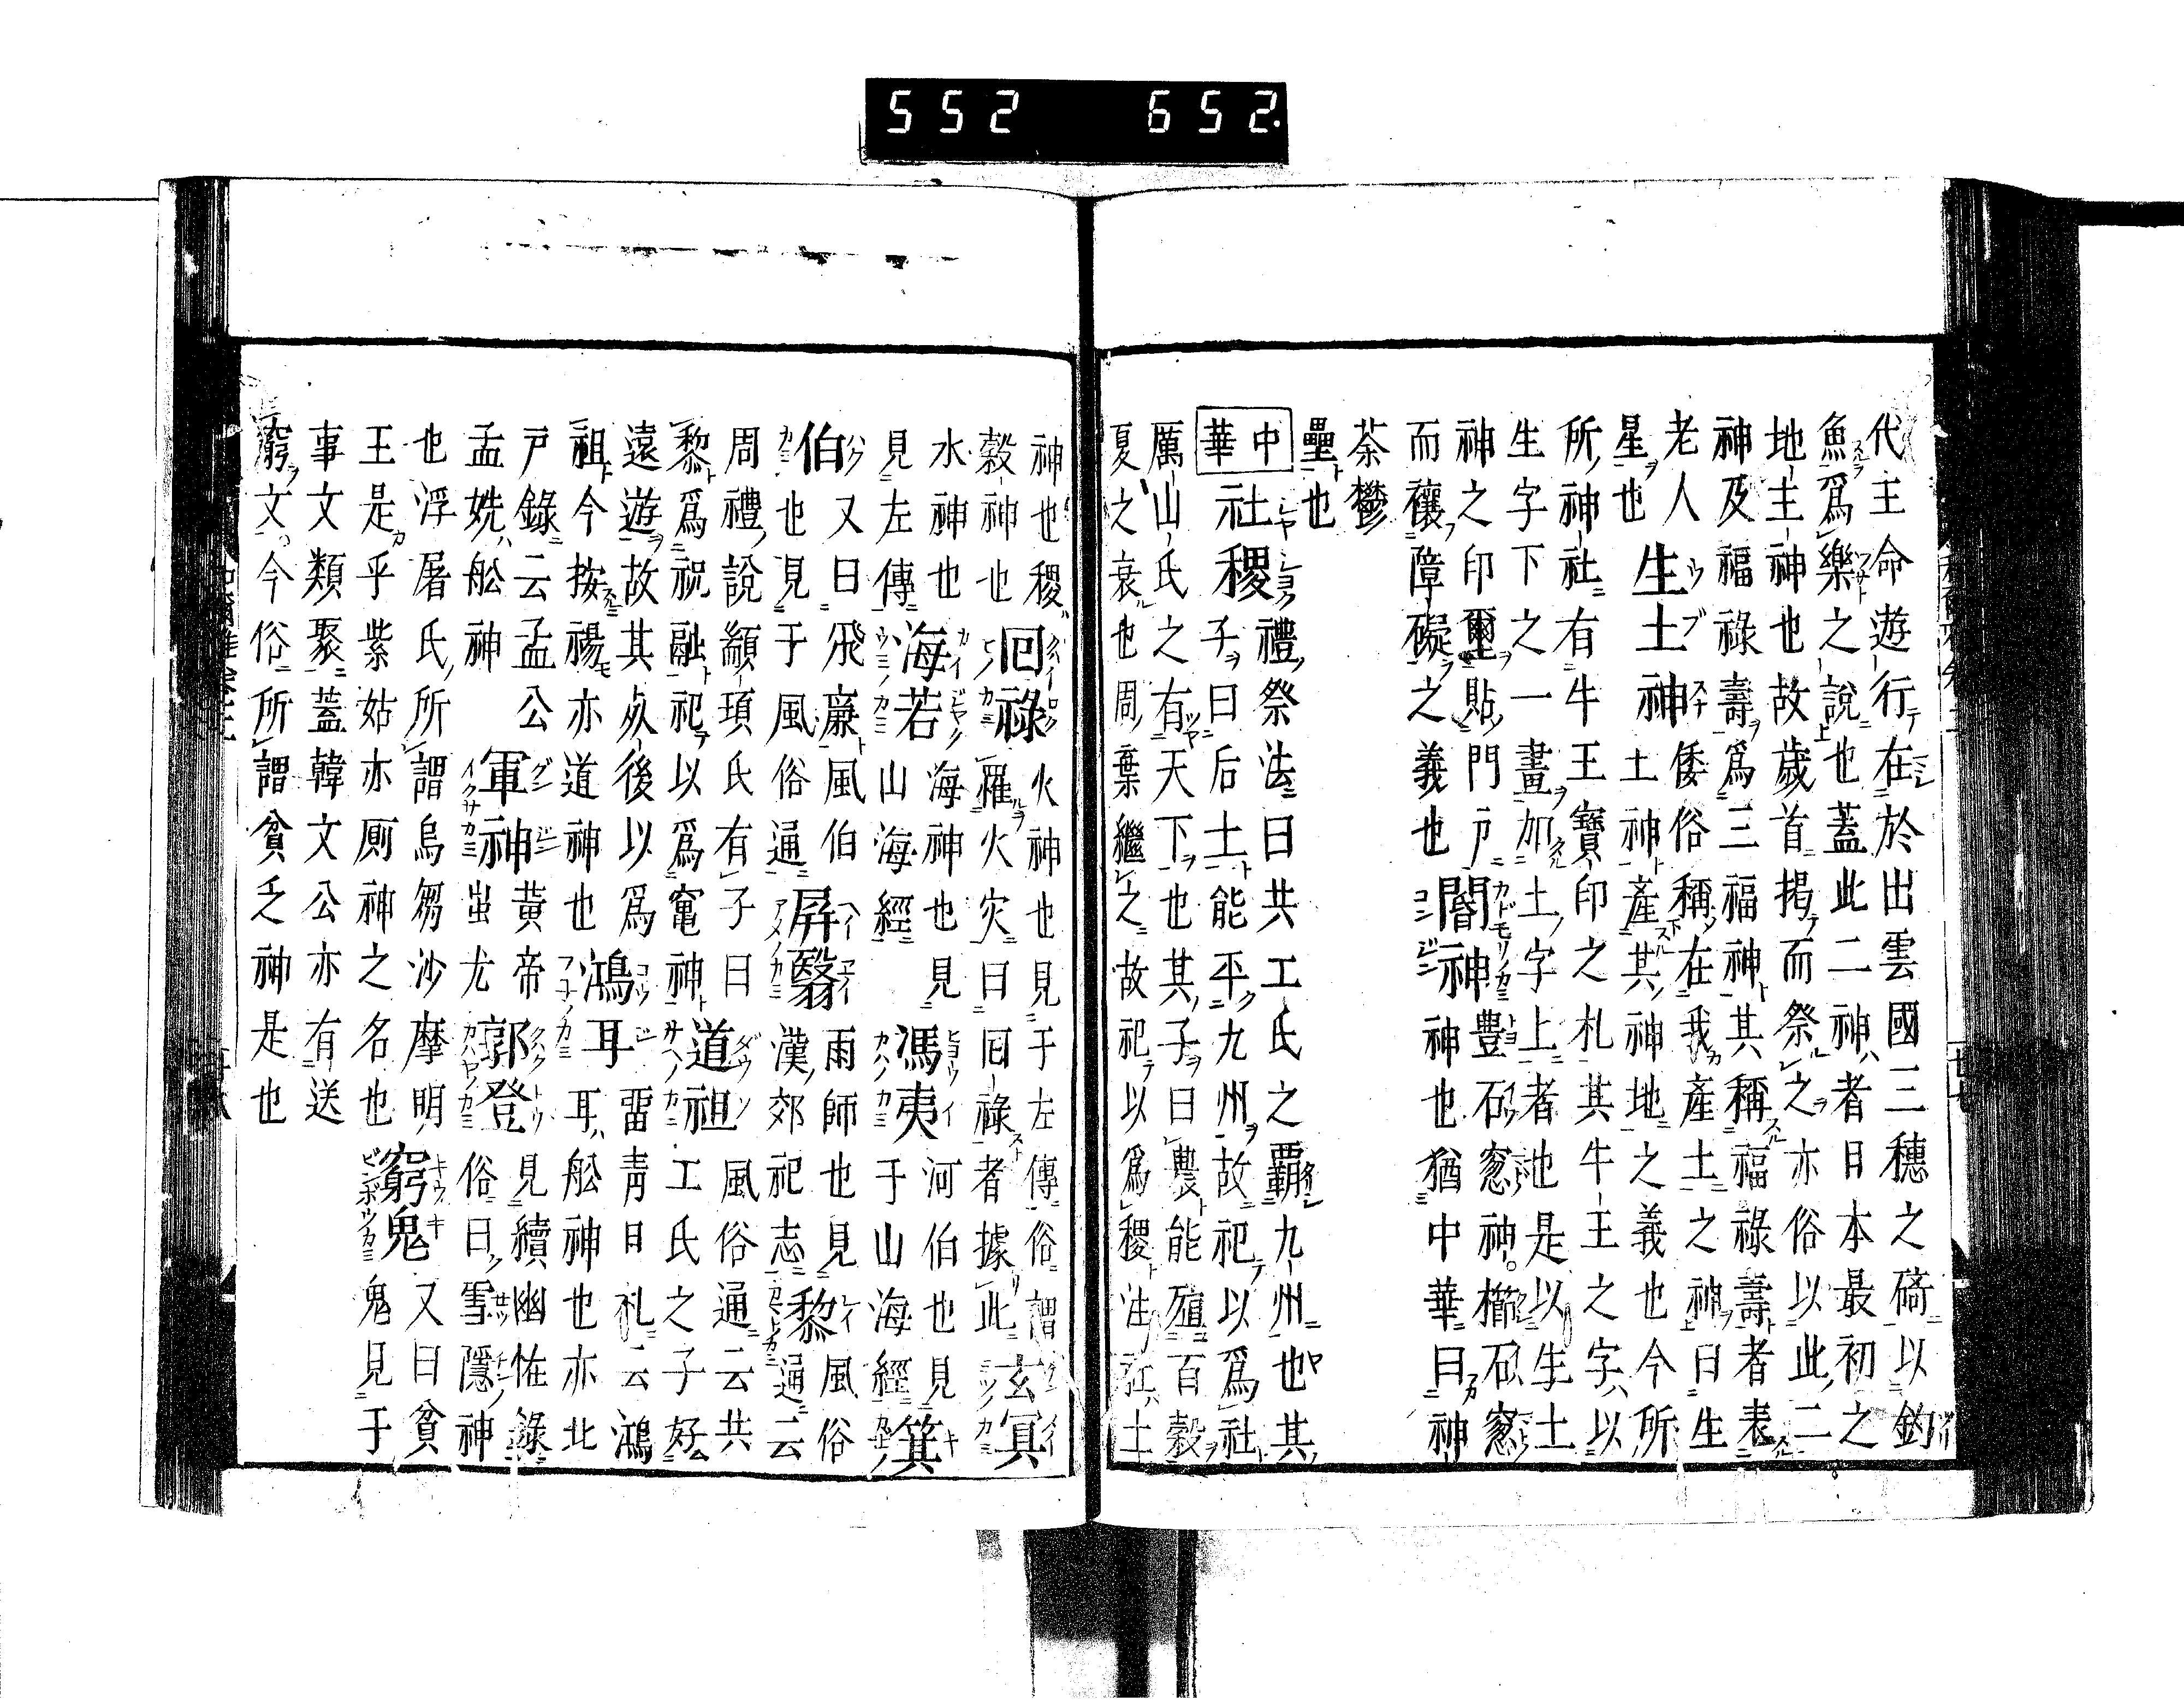 552 652.
代主命遊行在於出雲國三穗之碕以釣
魚爲樂之說也蓋此二神者日本最初之
地主神也故歲首揭而祭之亦俗以此二
神及福祿壽爲三福神其稱福祿壽者表
老人星也
生土神 倭俗稱在我產土之神曰生
土神產其神地之義也今所
所神社有牛王寶印之札其牛王之字以
生字下之一畫加土字上者也是以生土
神之印璽貼門戶
而禳障礙之義也
閽神 豊石窓神櫛石窓
神也猶中華曰神
荼鬱
壘也
中華
社稷 禮祭法曰共工氏之覇九州也其
子曰后土能平九州故祀以爲社
厲山氏之有天下也其子曰農能殖百穀
夏之衰也周葉繼之故祀以爲稷注社土
神也稷
穀神也
回祿 火神也見于左傳俗謂
罹火灾曰回祿者據此
玄冥
水神也
見左傳
海若 海神也見
山海經
馮夷 河伯也見
于山海經
箕
伯 又曰飛廉風伯
也見于風俗通
屏翳 雨師也見風俗
漢郊祀志
黎 風俗
通云
周禮說顓頊氏有子曰
黎爲祝融祀以爲竃神
道祖 風俗通云共
工氏之子好
遠遊故其死後以爲
祖今按禓亦道神也
鴻耳 雷青日札云鴻
耳舩神也亦北
戸錄云孟公
孟姺舩神
軍神 黄帝
出尤
郭登 見續幽恠錄
俗曰雪隱神
也浮屠氏所謂烏芻沙摩明
王是乎紫姑亦厠神之名也
窮鬼 又曰貧
鬼見于
事文類聚蓋韓文公亦有送
窮文今俗所謂貧乏神是也